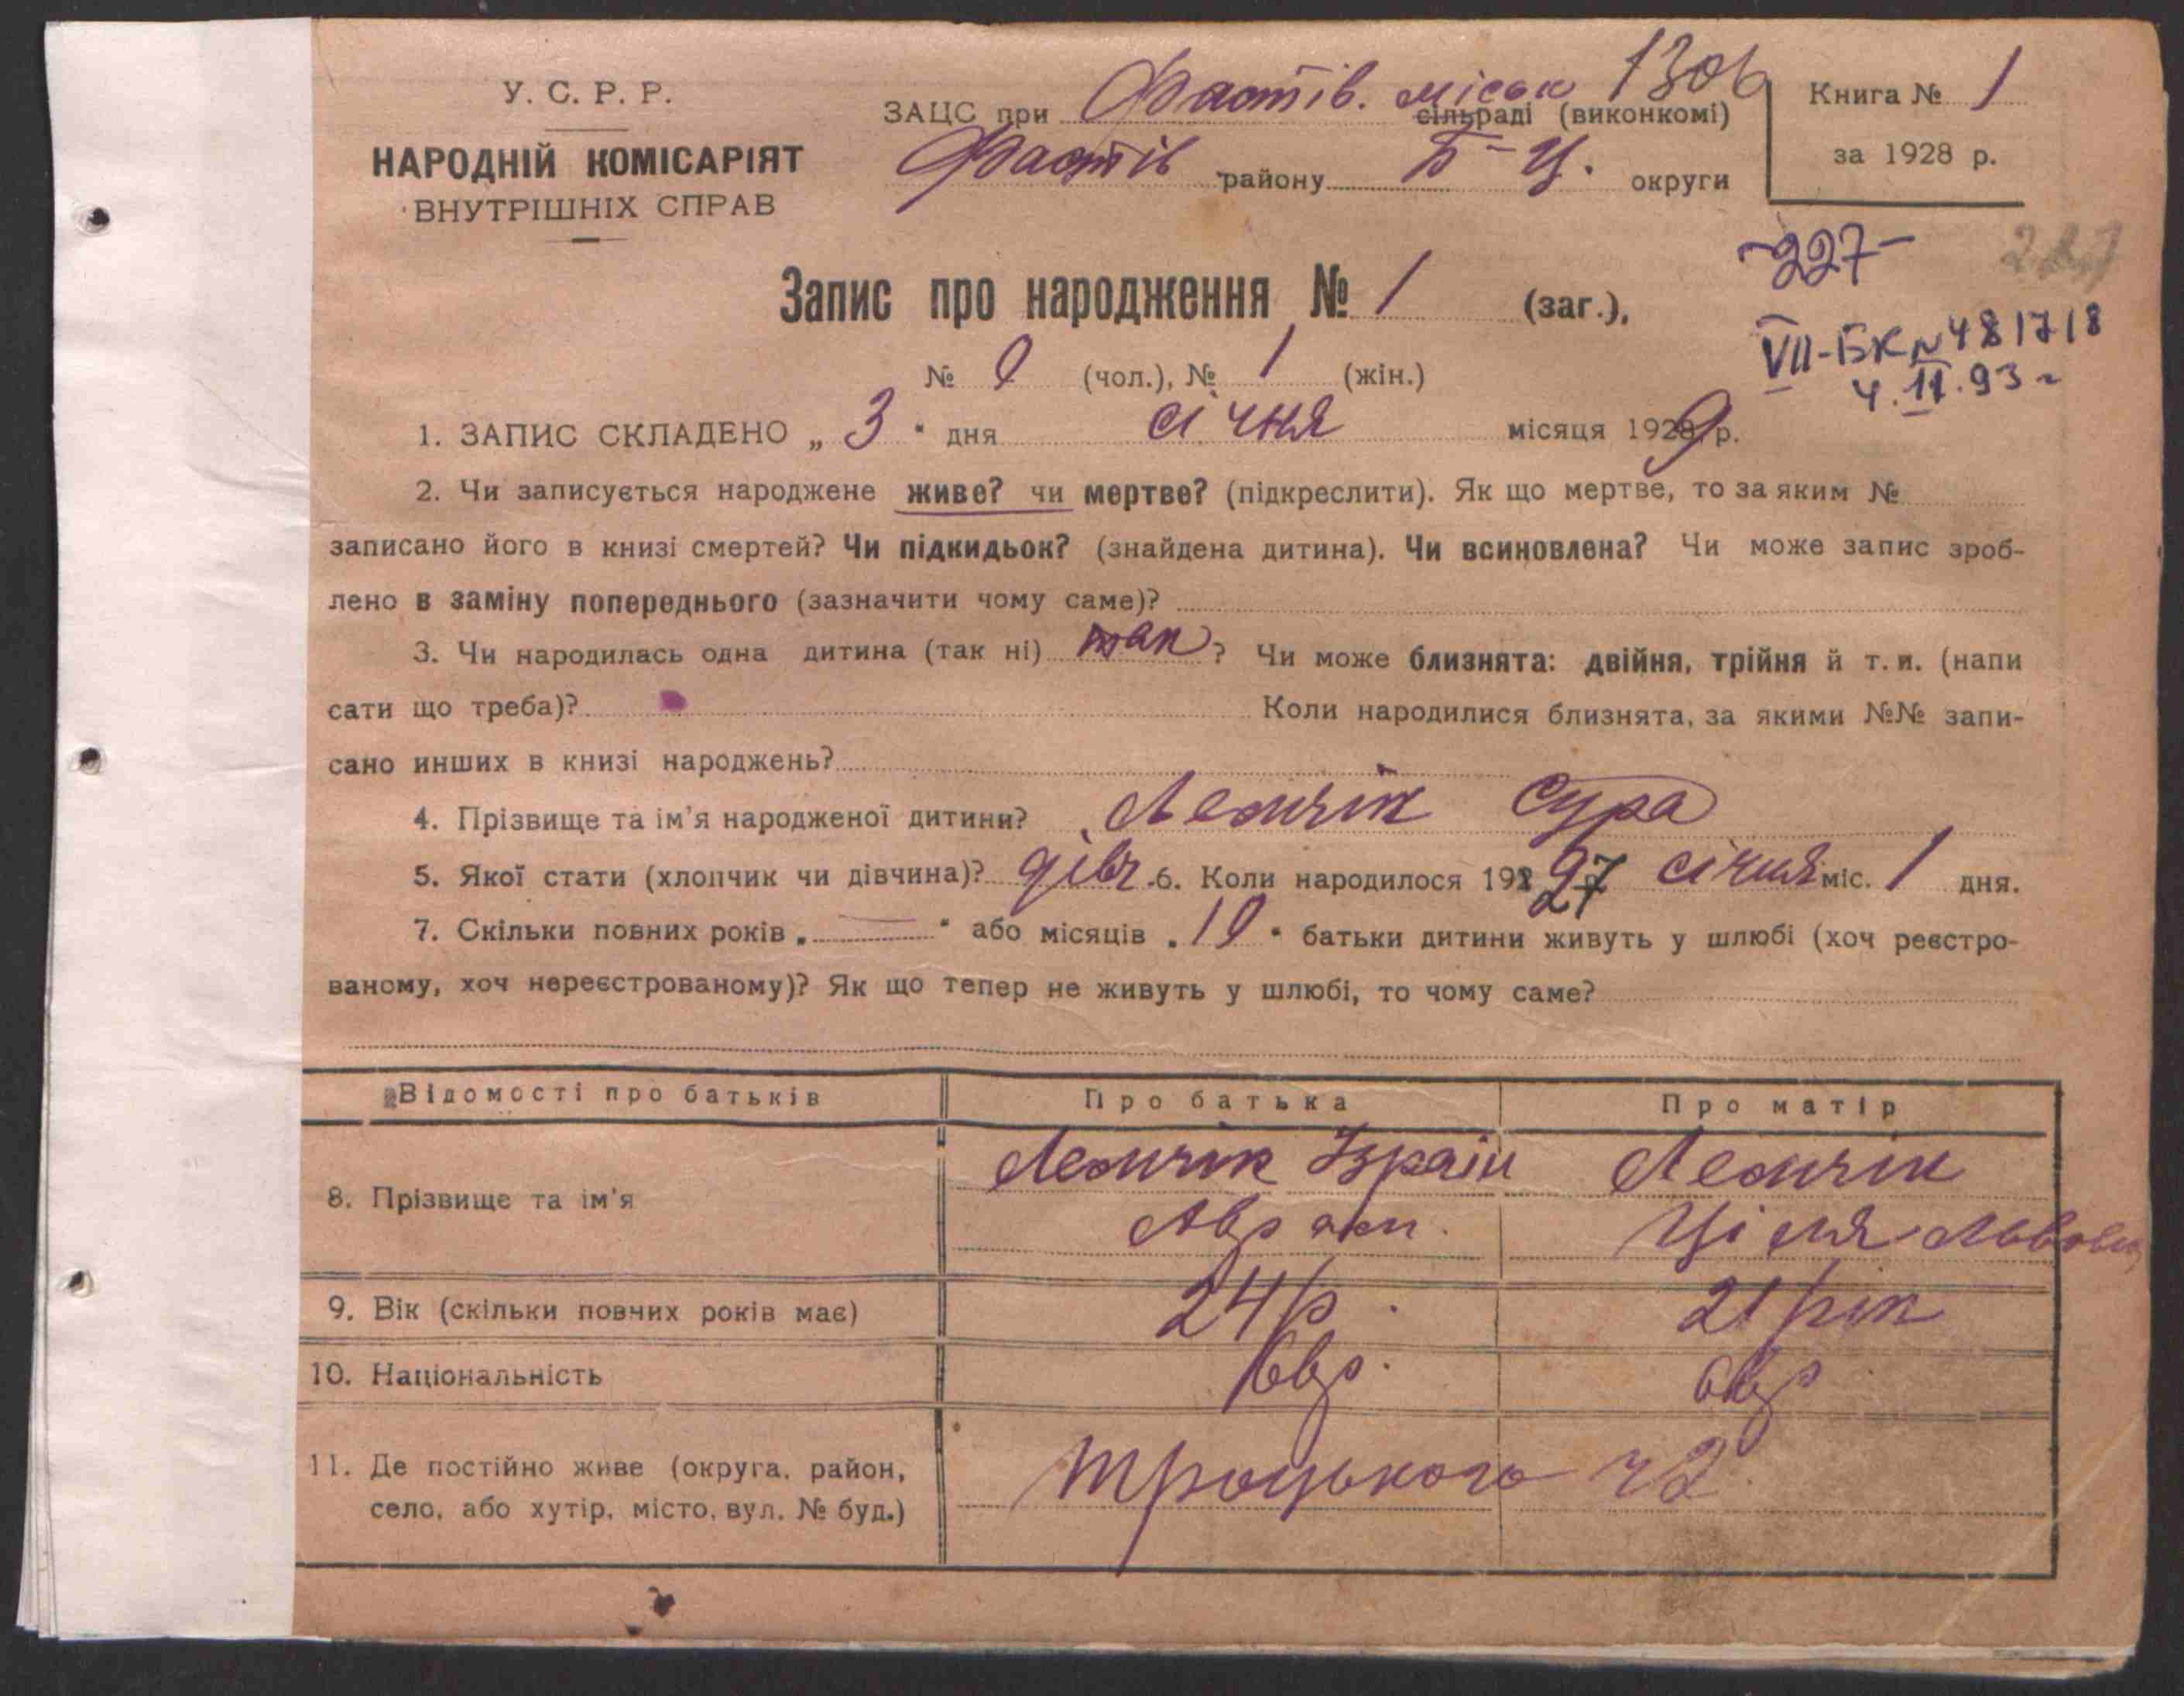 У. С. Р. Р.
НАРОДНІЙ КОМІСАРІЯТ
ВНУТРІШНІХ СПРАВ
ЗАЦС при Фастів. міськ сільраді (виконкомі)
Фастів району Б-Ц. округи
Книга № 1
за 1928 р.
-227-
227
VII-БК N 481718
Запис про народження № 1 (заг.),
№ 0 (чол.), № 1 (жін.)
1. ЗАПИС СКЛАДЕНО „ 3 " дня січня місяця 1929 р.
2. Чи записується народжене живе? чи мертве? (підкреслити). Як що мертве, то за яким №
записано його в книзі смертей? Чи підкидьок? (знайдена дитина). Чи всиновлена? Чи може запис зроб-
лено в заміну попереднього (зазначити чому саме)?
3. Чи народилась одна дитина (так ні) так ? Чи може близнята: двійня, трійня й т. и. (напи
сати що треба)? Коли народилися близнята, за якими №№ запи-
сано инших в книзі народжень?
4. Прізвище та ім'я народженої дитини? Лемчік Сура
5. Якої стати (хлопчик чи дівчина)? дівч. 6. Коли народилося 192 січня міс. 1 дня.
7. Скільки повних років „ — " або місяців „ 10 " батьки дитини живуть у шлюбі (хоч реєстро-
ваному, хоч нереєстрованому)? Як що тепер не живуть у шлюбі, то чому саме?
Відомості про батьків Про батька Про матір
8. Прізвище та ім'я Лемчік Ізраїл Лемчік
Аврам. Ціля Львовн
9. Вік (скільки повних років має) 24 р. 21 рік
10. Національність євр. євр
11. Де постійно живе (округа, район,
село, або хутір, місто, вул. № буд.) Троцького ч 2